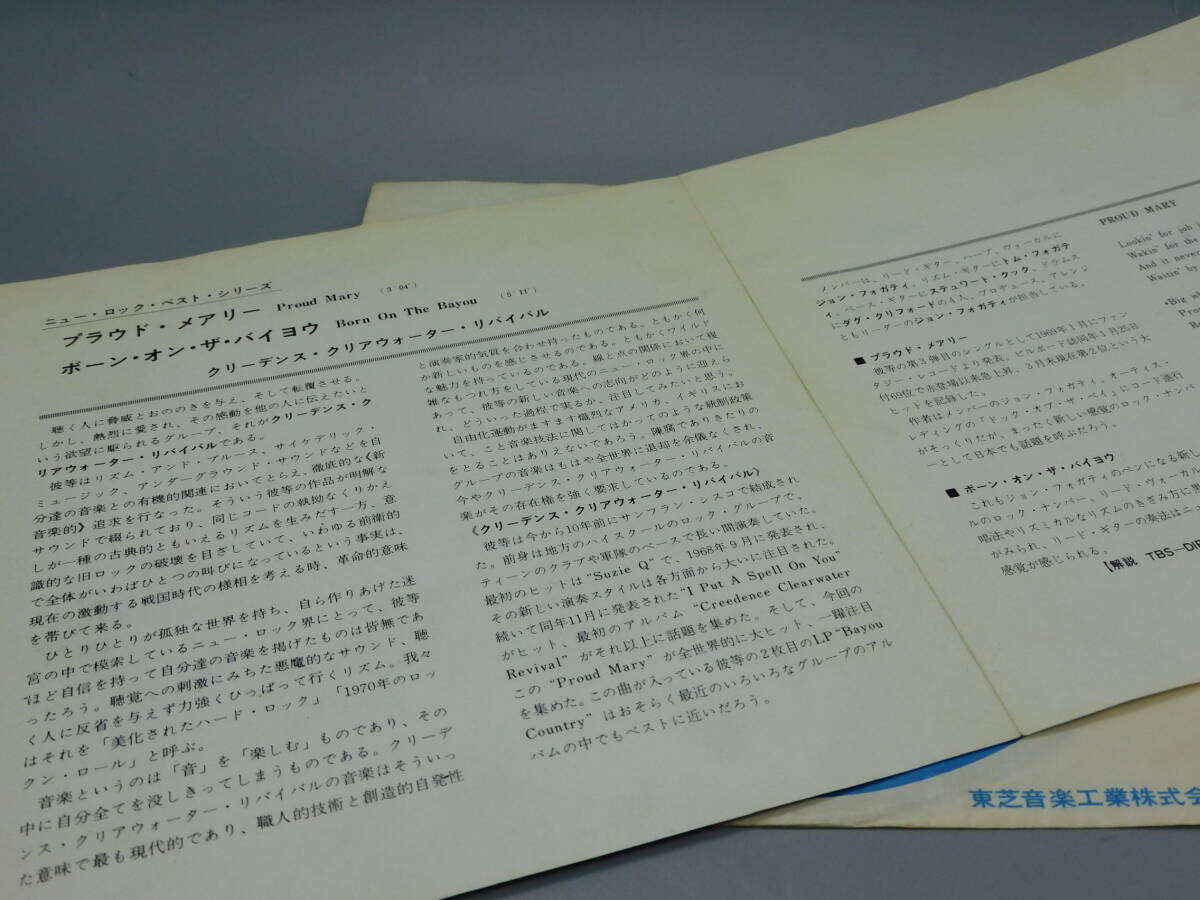 ニュー・ロック・ベスト・シリーズ
プラウド・メアリー Proud Mary (3′04″)
ボーン・オン・ザ・バイヨウ Born On The Bayou (5′11″)
クリーデンス・クリアウォーター・リバイバル
聴く人に脅威とおののきを与え、そして転覆させる。
しかし、熱烈に愛され、その感動を他の人に伝えたいと
いう欲望に駆られるグループ、それがクリーデンス・ク
リアウォーター・リバイバルである。
彼等はリズム・アンド・ブルース、サイケデリック・
ミュージック、アンダーグラウンド・サウンドなどを自
分達の音楽との有機的関連においてとらえ、徹底的な《新
音楽的》追求を行なった。そういう彼等の作品が明解な
サウンドで綴られており、同じコードの執拗なくりかえ
しが一種の古典的ともいえるリズムを生みだす一方、意
識的な旧ロックの破壊を目ざしていて、いわゆる前衛的
で全体がいわばひとつの叫びになっているという事実は、
現在の激動する戦国時代の様相を考える時、革命的意味
を帯びて来る。
ひとりひとりが孤独な世界を持ち、自ら作りあげた迷
宮の中で模索しているニュー・ロック界にとって、彼等
ほど自信を持って自分達の音楽を掲げたものは皆無であ
ったろう。聴覚への刺激にみちた悪魔的なサウンド、聴
く人に反省を与えず力強くひっぱって行くリズム。我々
はそれを「美化されたハード・ロック」「1970年のロッ
クン・ロール」と呼ぶ。
音楽というのは「音」を「楽しむ」ものであり、その
中に自分全てを没しきってしまうものである。クリーデ
ンス・クリアウォーター・リバイバルの音楽はそういっ
た意味で最も現代的であり、職人的技術と創造的自発性
と演奏家的気質を合わせ持ったものである。ともかく何
か新しいものを感じさせるのである。ともかくワイルド
な魅力を持っているのである。線と点の関係において複
雑なもつれ方をしている現代のニュー・ロック界の中に
あって、彼等の新しい音楽への志向がどのように迎えら
れ、どういった過程で実るか、注目してみたいと思う。
自由化運動がますます熾烈なアメリカ、イギリスにお
いて、こと音楽技法に関してはかつてのような統制政策
をとることはありえないであろう。陳腐でありきたりの
グループの音楽はもはや全世界に退却を余儀なくされ、
今やクリーデンス・クリアウォーター・リバイバルの音
楽がその存在権を強く要求しているのである。
《クリーデンス・クリアウォーター・リバイバル》
彼等は今から10年前にサンフラン・シスコで結成され
た。前身は地方のハイスクールのロック・グループで、
ティーンのクラブや軍隊のベースで長い間演奏していた。
最初のヒットは“Suzie Q”で、1968年9月に発表され、
その新しい演奏スタイルは各方面から大いに注目された。
続いて同年11月に発表された“I Put A Spell On You”
がヒット、最初のアルバム “Creedence Clearwater
Revival” がそれ以上に話題を集めた。そして、今回の
この “Proud Mary” が全世界的に大ヒット、一躍注目
を集めた。この曲が入っている彼等の2枚目のLP“Bayou
Country” はおそらく最近のいろいろなグループのアル
バムの中でもベストに近いだろう。
メンバーは、リード・ギター、ハープ、ヴォーカルに
ジョン・フォガティ、リズム・ギターにトム・フォガテ
ィ、ベース・ギターにステュワート・クック、ドラムス
にダグ・クリフォードの4人。プロデュース、アレンジ
ともリーダーのジョン・フォガティが担当している。
■ プラウド・メアリー
彼等の第3弾目のシングルとして1969年1月にファン
タジー・レコードより発表。ビルボード誌同年1月25日
付69位で赤登場以来急上昇、3月末現在第2位という大
ヒットを記録した。
作者はメンバーのジョン・フォガティ。オーティス・
レディングの「ドック・オブ・ザ・ベイ」にコード進行
がそっくりだが、まったく新しい感覚のロック・ナンバ
ーとして日本でも話題を呼ぶだろう。
■ ボーン・オン・ザ・バイヨウ
これもジョン・フォガティのペンになる新し
ルのロック・ナンバー、リード・ヴォーカ
唱法やリズミカルなリズムのきざみ方に
がみられ、リード・ギターの奏法はニュ
感覚が感じられる。
【解説 TBS—DI
PROUD MARY
Lookin' for job i
Wakin' for the
And it never
Waitin' be
•Big
Pro
東芝音楽工業株式会